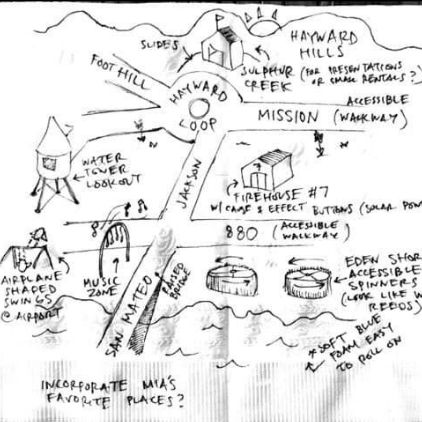 SLIDES
HAYWARD
HILLS
(FOR PRESENTATIONS
OR SMALL RENTALS?)
SULPHUR
CREEK
FOOTHILL
HAYWARD
LOOP
MISSION (ACCESSIBLE
WALKWAY)
WATER
TOWER
LOOKOUT
JACKSON
FIREHOUSE #7
W/ CAUSE & EFFECT BUTTONS (SOLAR POW
880 (ACCESSIBLE
WALKWAY)
AIRPLANE
SHAPED
SWINGS
@ AIRPORT
MUSIC
ZONE
SAN MATEO
RAISED
BRIDGE
EDEN SHOR
ACCESSIBLE
SPINNERS
(LOOK LIKE W
REEDS)
* SOFT BLUE
FOAM EASY
TO ROLL ON
INCORPORATE MIA'S
FAVORITE PLACES?